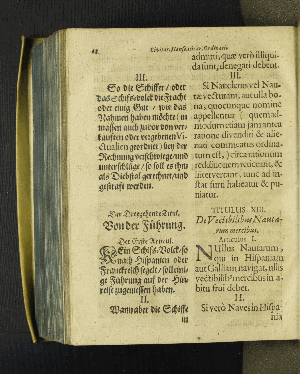 68
Civitat. Hanseaticar. Ordinatio
III.
So die Schiffer / oder
das Schifsvolck die Fracht
oder einig Gut / wie das
Nahmen haben möchte / in
massen auch zuvor von ver-
kaufften oder vergebenen Vi-
ctualien geordnet / bey der
Rechnung verschwiege und
unterschlüge / so soll es ihm
als Diebstal gerechnet / und
gestraft werden.
Der Dreyzehente Titul.
Von der Führung.
Der Erste Articul.
KEin Schifs-Volck so
nach Hispanien oder
Franckreich segelt / soll eini-
ge Führung auf der Hin-
reise zugeniessen haben.
II.
Wann aber die Schiffe
admitti, quæ verò illiqui-
da sunt, denegari debent.
III.
Si Nauclerus vel Nau-
tæ vecturam, aut ulla bo-
na, quocunque nomine
appellentur
modum etiam jam antea
ratione divendiri & alie-
nati commeatus ordina-
tum est,
reddituum reticerent, &
interverterent, tunc ad in-
star furti habeatur & pu-
niatur.
TITULUS XIII.
De Vectibilibus Nauta-
rum mercibus.
ARTICULUS I.
NUllus Nautarum,
qui in Hispaniam
aut Galliam navigat, ullis
vectibilib9 mercibus in a-
bitu frui debet.
II.
Si verò Naves in Hispa-
nia